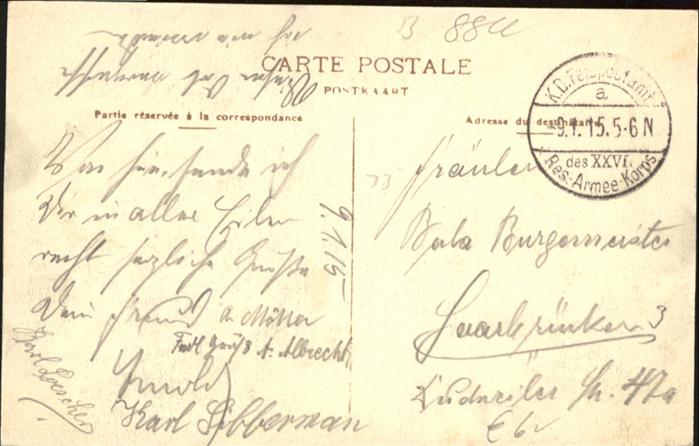 B 88u
CARTE POSTALE
POSTKAART
Partie réservée à la correspondance
Adresse du destinataire
K.D. Feldpostamt
a
-9.1.15.5-6N
des XXVI.
Res.-Armee-Korps
Von hier sende ich
Dir in aller Eile
recht herzliche Grüße
Dein Freund
A. Möller
Frdl Grüß A. Albrecht
Arnold
Karl Libberman
Karl
9.1.15
Fräulein
Bela Burgemeister
Saarbrücken 3
Dudweiler Str. 47a